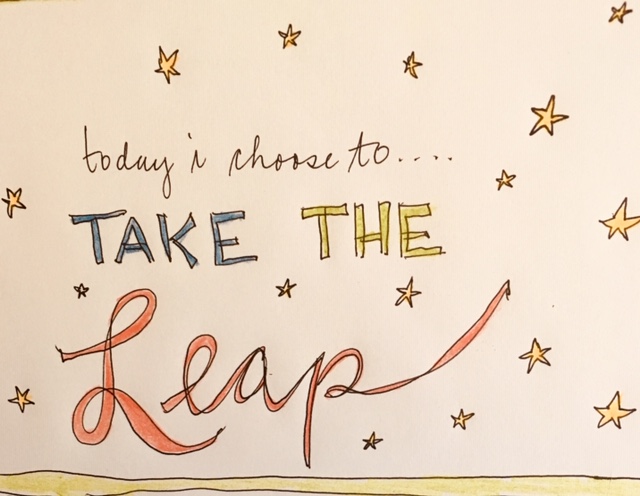 today i choose to....
TAKE THE
Leap